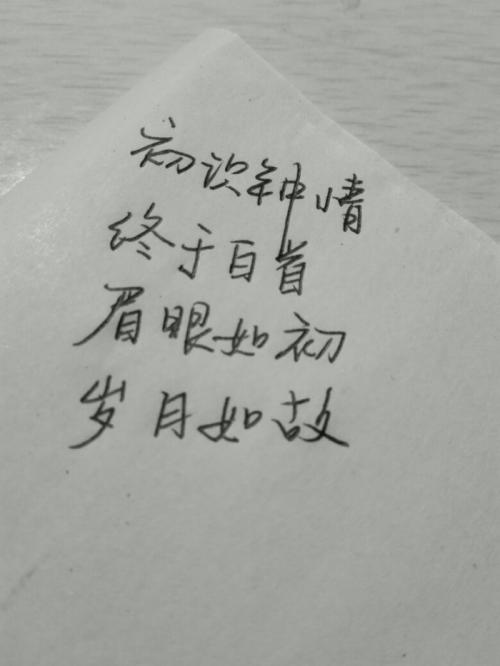 初识钟情
终于白首
眉眼如初
岁月如故